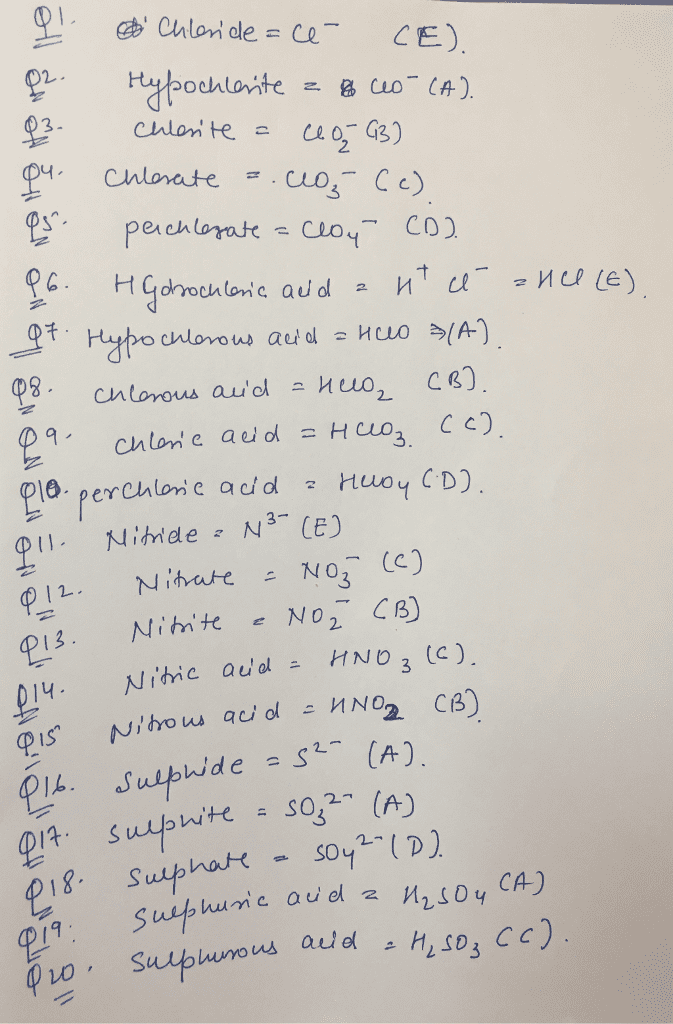 Q1. Chloride = Cl⁻ (E).
Q2. Hypochlorite = ClO⁻ (A).
Q3. Chlorite = ClO₂⁻ (B)
Q4. Chlorate = . ClO₃⁻ (C)
Q5. perchlorate = ClO₄⁻ (D).
Q6. Hydrochloric acid = H⁺ Cl⁻ = HCl (E).
Q7. Hypochlorous acid = HClO ⇒(A).
Q8. Chlorous acid = HClO₂ (B).
Q9. Chloric acid = HClO₃ (C).
Q10. perchloric acid = HClO₄ (D).
Q11. Nitride = N³⁻ (E)
Q12. Nitrate = NO₃⁻ (C)
Q13. Nitrite = NO₂⁻ (B)
Q14. Nitric acid = HNO₃ (C).
Q15 Nitrous acid = HNO₂ (B)
Q16. Sulphide = S²⁻ (A).
Q17. Sulphite = SO₃²⁻ (A)
Q18. Sulphate = SO₄²⁻ (D).
Q19. Sulphuric acid = H₂SO₄ (A)
Q20. Sulphurous acid = H₂SO₃ (C).